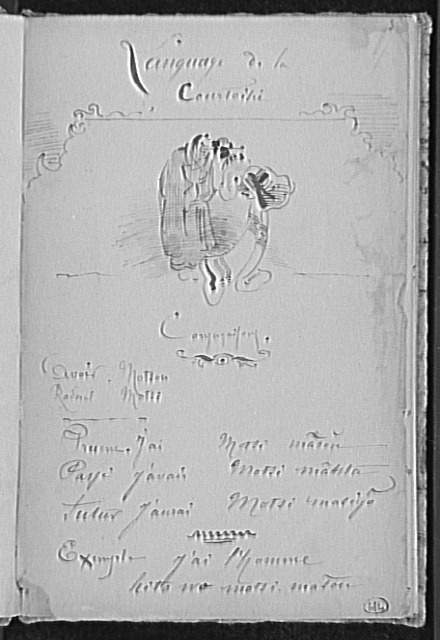 Language de la
Courtoisie
Conjugaison.
Avoir. Motsu
Radical Motsi
Prume. J'ai Motsi masu
Passé J'avais Motsi mashta
Futur J'aurai Motsi mashō
Exemple J'ai l'homme
hito wo motsi. masu